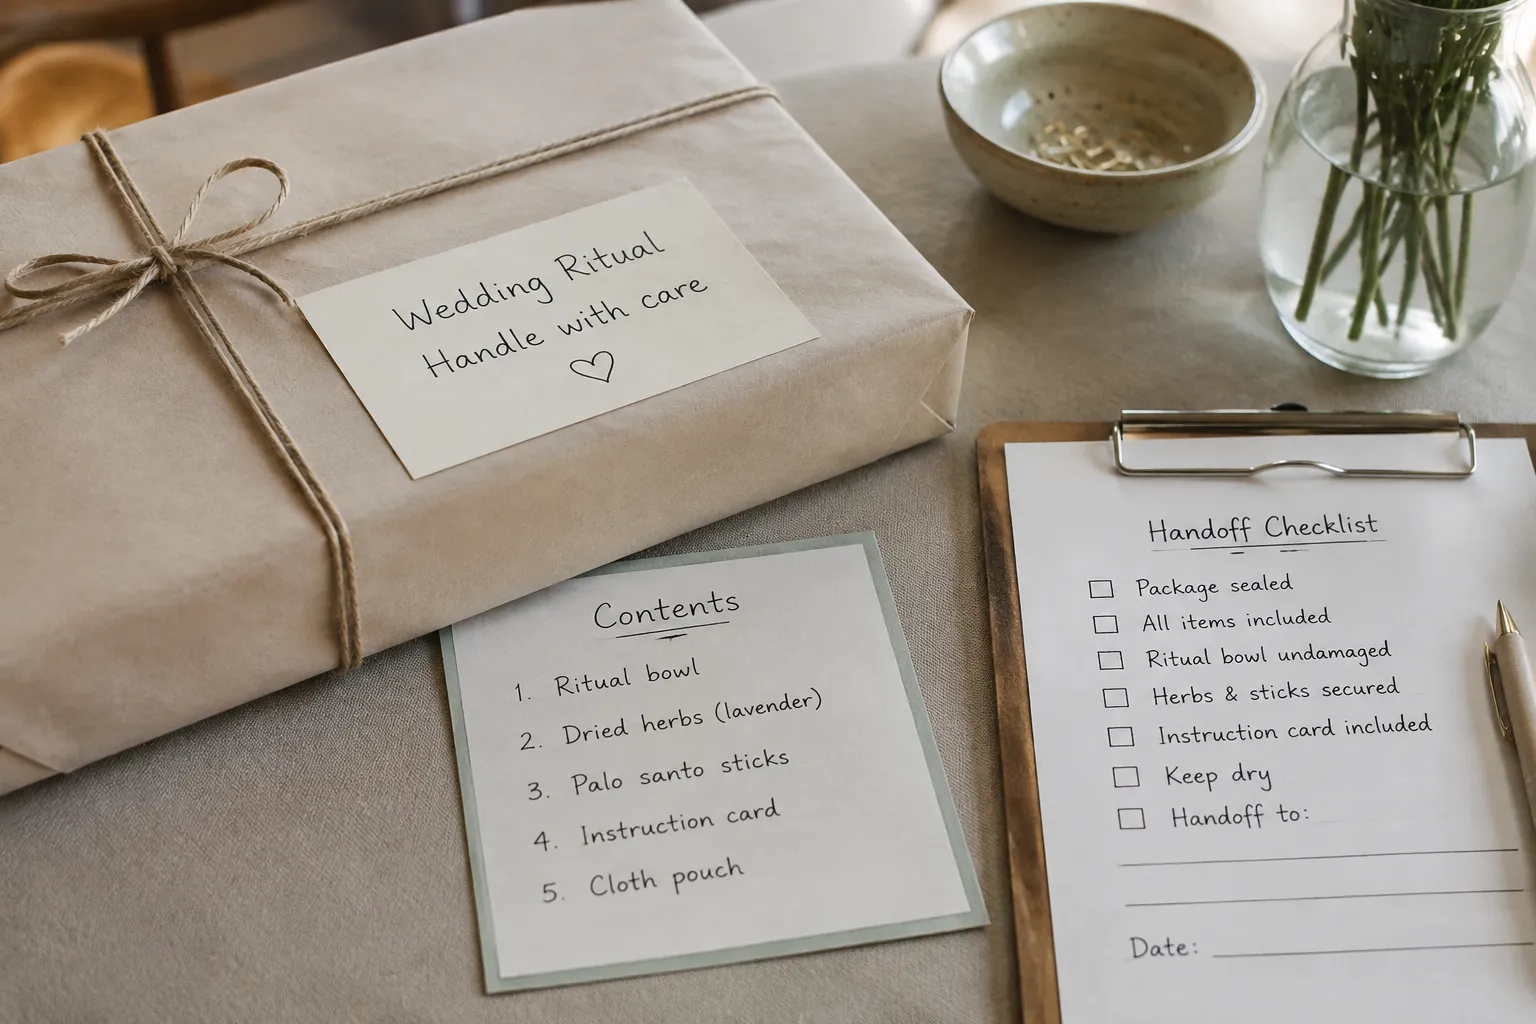 Wedding Ritual
Handle with care
♡
Contents
1. Ritual bowl
2. Dried herbs (lavender)
3. Palo santo sticks
4. Instruction card
5. Cloth pouch
Handoff Checklist
☐ Package sealed
☐ All items included
☐ Ritual bowl undamaged
☐ Herbs & sticks secured
☐ Instruction card included
☐ Keep dry
☐ Handoff to:
Date: